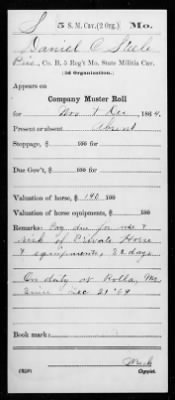 S | 5 S. M. Cav. (2 Org.) | Mo.
Daniel C Steele
Co. B, 5 Reg't Mo. State Militia Cav.
(2d Organization.)
Appears on
Company Muster Roll
for Nov & Dec, 1864.
Present or absent Absent
Stoppage, $ 100 for
Due Gov't, $ 100 for
Valuation of horse, $ 140 100
Valuation of horse equipments, $ 100
Remarks: Pay due for use &
risk of Private Horse
& equipments, 32 days
On duty at Rolla, Mo
since Dec 21" 64
Book mark:
(858)
Copyist.